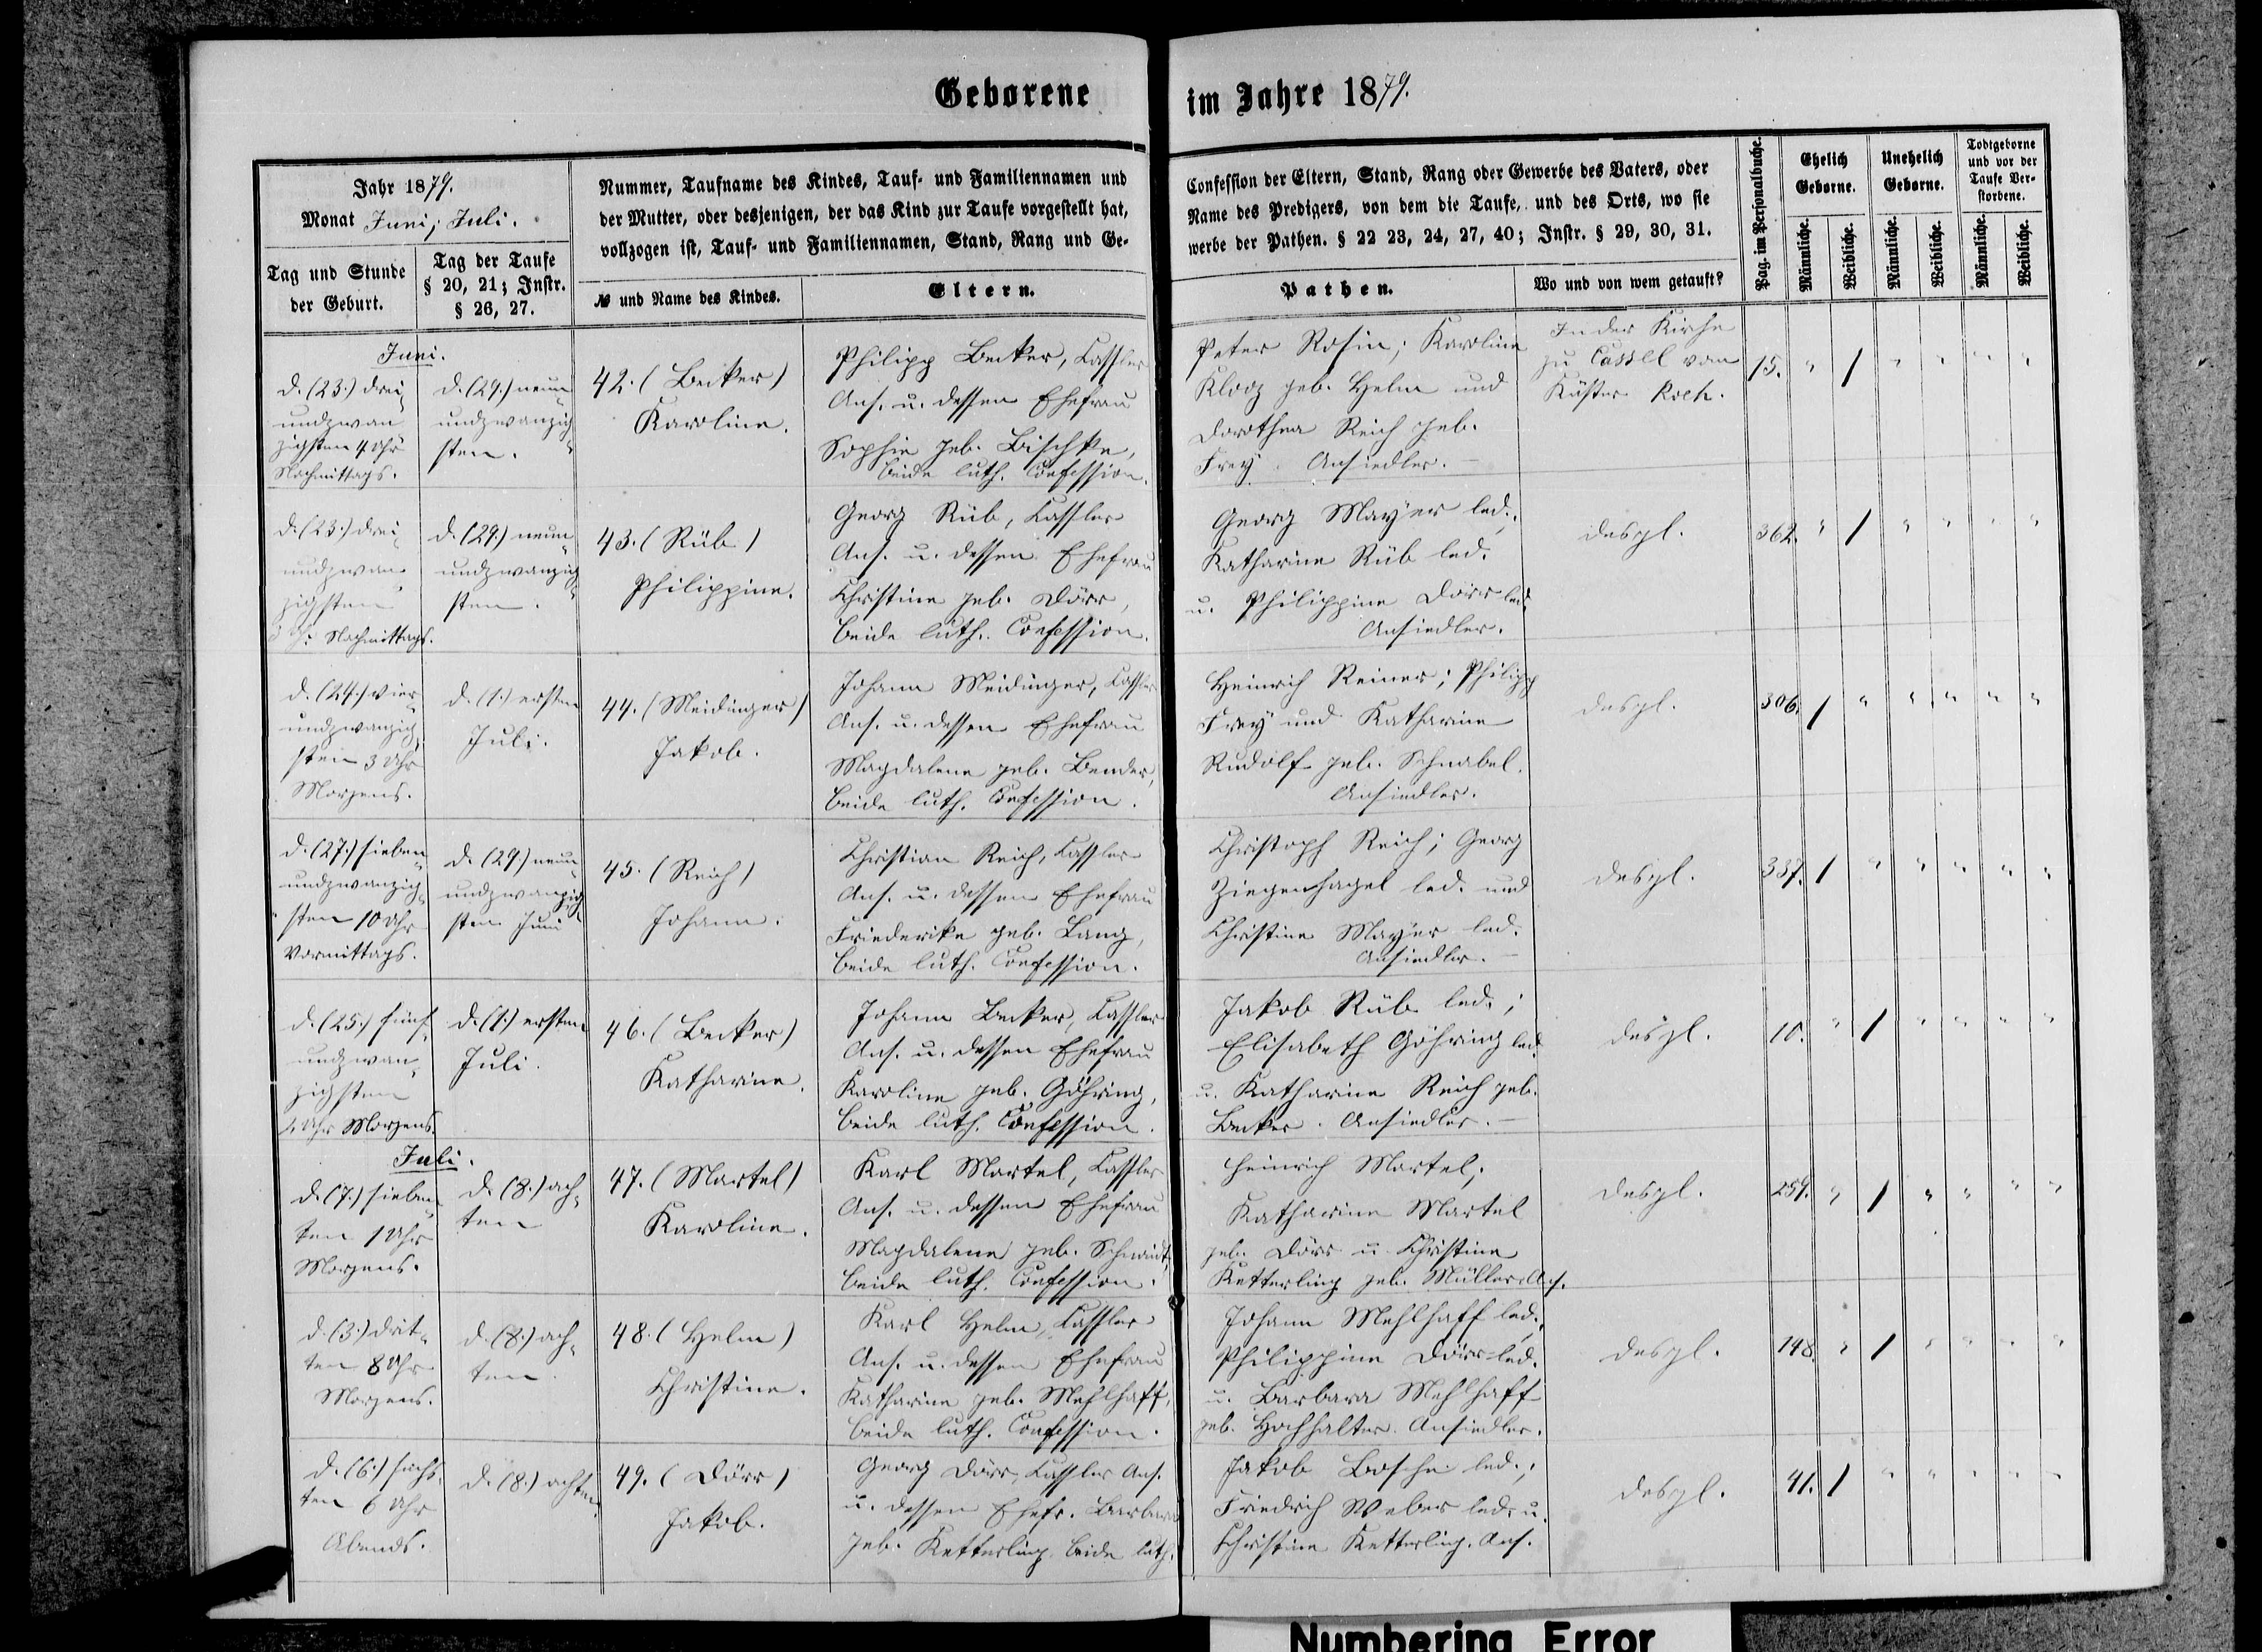 Geborene im Jahre 1879.
Jahr 1879.
Monat Juni; Juli.
Tag und Stunde
der Geburt.
Tag der Taufe
§ 20, 21; Instr.
§ 26, 27.
Nummer, Taufname des Kindes, Tauf- und Familiennamen und
der Mutter, oder desjenigen, der das Kind zur Taufe vorgestellt hat,
vollzogen ist, Tauf- und Familiennamen, Stand, Rang und Ge-
№ und Name des Kindes.
Eltern.
Confession der Eltern, Stand, Rang oder Gewerbe des Vaters, oder
Name des Predigers, von dem die Taufe, und des Orts, wo sie
werbe der Pathen. § 22 23, 24, 27, 40; Instr. § 29, 30, 31.
Pathen.
Wo und von wem getauft?
Pag. im Personalbuche.
Ehelich
Geborne.
Unehelich
Geborne.
Todtgeborne
und vor der
Taufe Ver-
storbene.
Männliche.
Weibliche.
Männliche.
Weibliche.
Männliche.
Weibliche.
Juni.
d. (23.) drei-
undzwan
zigsten 4 Uhr
Nachmittags.
d. (29.) neun
undzwanzig-
sten.
42. (Becker)
Karoline.
Philipp Becker, Kassler
Ans. u. dessen Ehefrau
Sophie geb. Bischke,
beide luth. Confession.
Peter Rosin; Karoline
Klooz geb. Helm und
Dorothea Reich geb.
Frey. Ansiedler. –
In der Kirche
zu Cassel vom
Küster Koch.
15. " / " " " "
d. (23.) drei-
undzwan-
zigsten
Uhr Nachmittags.
d. (29.) neun-
undzwanzig-
sten.
43. (Rüb)
Philippine.
Georg Rüb, Kassler
Ans. u. dessen Ehefrau
Christine geb. Dörr,
beide luth. Confession.
Georg Mayer led.,
Katharine Rüb led.
u. Philippine Dörr led.
Ansiedler.
desgl.
362. " / " " " "
d. (24.) vier-
undzwanzig-
sten 3 Uhr
Morgens.
d. (1.) ersten
Juli.
44. (Meidinger)
Jakob.
Johann Meidinger, Kassler
Ans. u. dessen Ehefrau
Magdalena geb. Bender,
beide luth. Confession.
Heinrich Reiner; Philipp
Frey und Katharine
Rudolf geb. Schnabel.
Ansiedler.
desgl.
306. / " " " " "
d. (27.) sieben-
undzwanzig-
sten 10 Uhr
Vormittags.
d. (29.) neun-
undzwanzig-
sten Juni
45. (Reich)
Johann.
Christian Reich, Kassler
Ans. u. dessen Ehefrau
Friederike geb. Lang,
beide luth. Confession.
Christoph Reich; Georg
Ziegenhagel led. und
Christine Mayer led.
Ansiedler. –
desgl.
337. / " " " " "
d. (25.) fünf-
undzwan-
zigsten
Uhr Morgens.
d. (1.) ersten
Juli.
46. (Becker)
Katharine.
Johann Becker, Kassler
Ans. u. dessen Ehefrau
Karoline geb. Göhring,
beide luth. Confession.
Jakob Rüb led.;
Elisabeth Göhring led.
u. Katharine Reich geb.
Becker. Ansiedler. –
desgl.
10. " / " " " "
Juli.
d. (7.) sieben-
ten 1 Uhr
Morgens.
d. (8.) ach-
ten
47. (Martel)
Karoline.
Karl Martel, Kassler
Ans. u. dessen Ehefrau
Magdalena geb. Schmidt,
beide luth. Confession.
Heinrich Martel;
Katharine Martel
geb. Dörr u. Christine
Ketterling geb. Müller Ans.
desgl.
259. " / " " " "
d. (3.) drit-
ten 8 Uhr
Morgens.
d. (8.) ach-
ten.
48. (Helm)
Christine.
Karl Helm, Kassler
Ans. u. dessen Ehefrau
Katharine geb. Mehlhaff,
beide luth. Confession.
Johann Mehlhaff led.,
Philippine Dörr led.
u. Barbara Mehlhaff
geb. Hochhalter. Ansiedler.
desgl.
148. " / " " " "
d. (6.) sechs-
ten 6 Uhr
Abends.
d. (8.) achten.
49. (Dörr)
Jakob.
Georg Dörr, Kassler Ans.
u. dessen Ehefr. Barbara
geb. Ketterling beide luth.
Jakob led.;
Friedrich Weber led. u.
Christine Ketterling. Ans.
desgl.
41. / " " " " "
Numbering Error